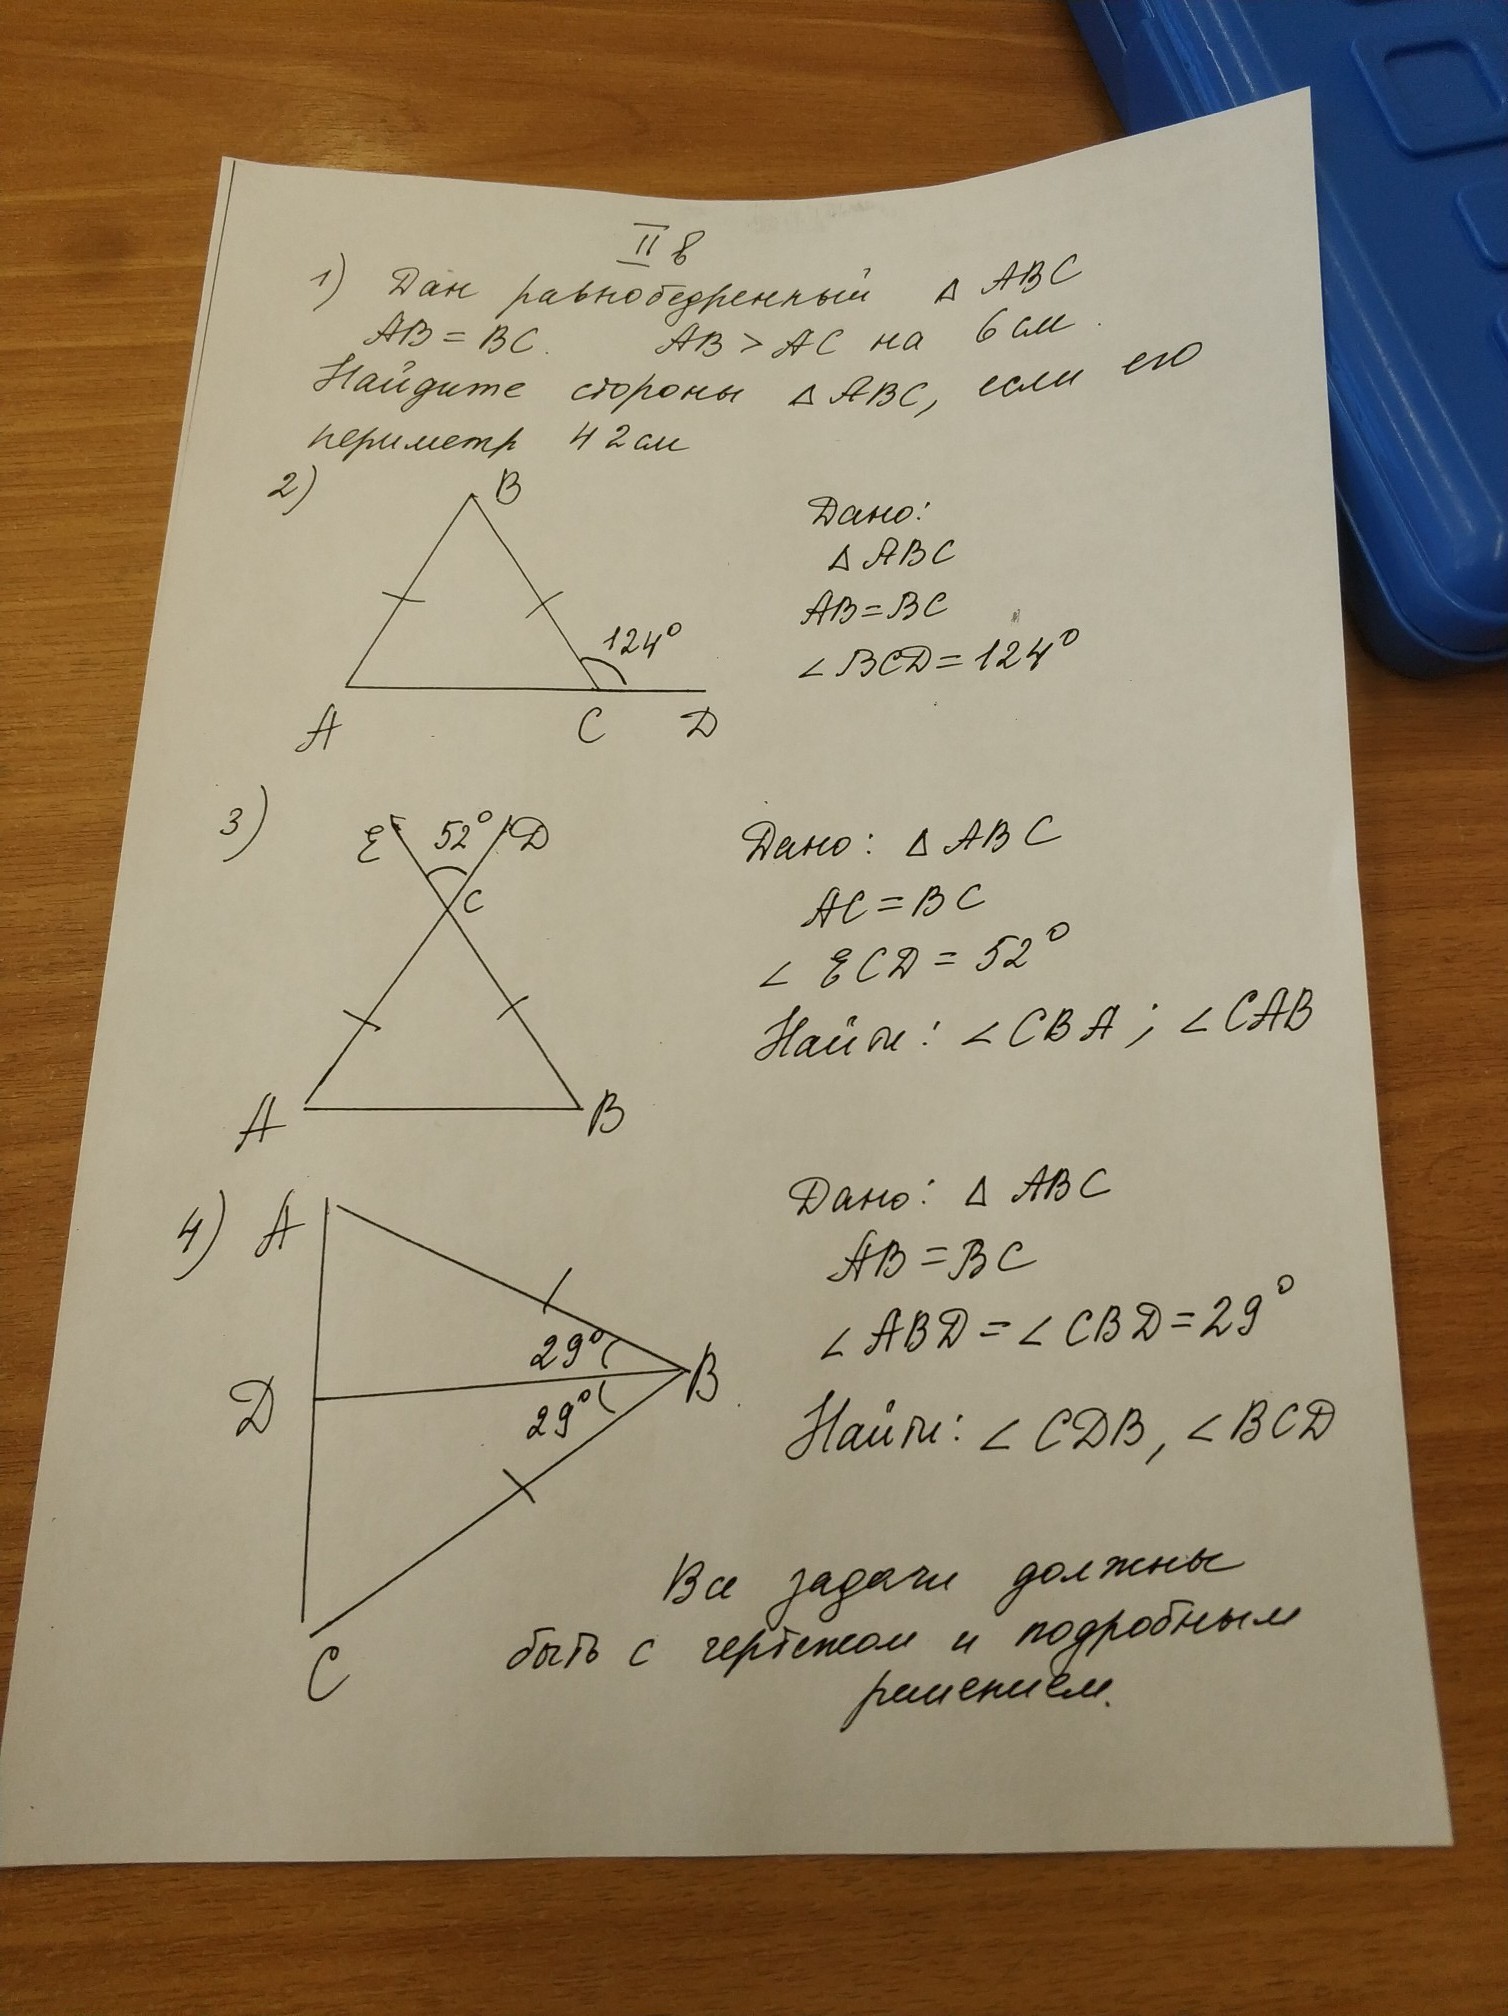 II в
1) Дан равнобедренный △ ABC
AB = BC. AB > AC на 6 см.
Найдите стороны △ ABC, если его
периметр 42 см
2)
B
124°
A C D
Дано:
△ ABC
AB = BC
∠ BCD = 124°
3)
E 52° D
C
A B
Дано: △ ABC
AC = BC
∠ ECD = 52°
Найти: ∠ CBA; ∠ CAB
4) A
29°
D B
29°
C
Дано: △ ABC
AB = BC
∠ ABD = ∠ CBD = 29°
Найти: ∠ CDB, ∠ BCD
Все задачи должны
быть с чертежом и подробным
решением.